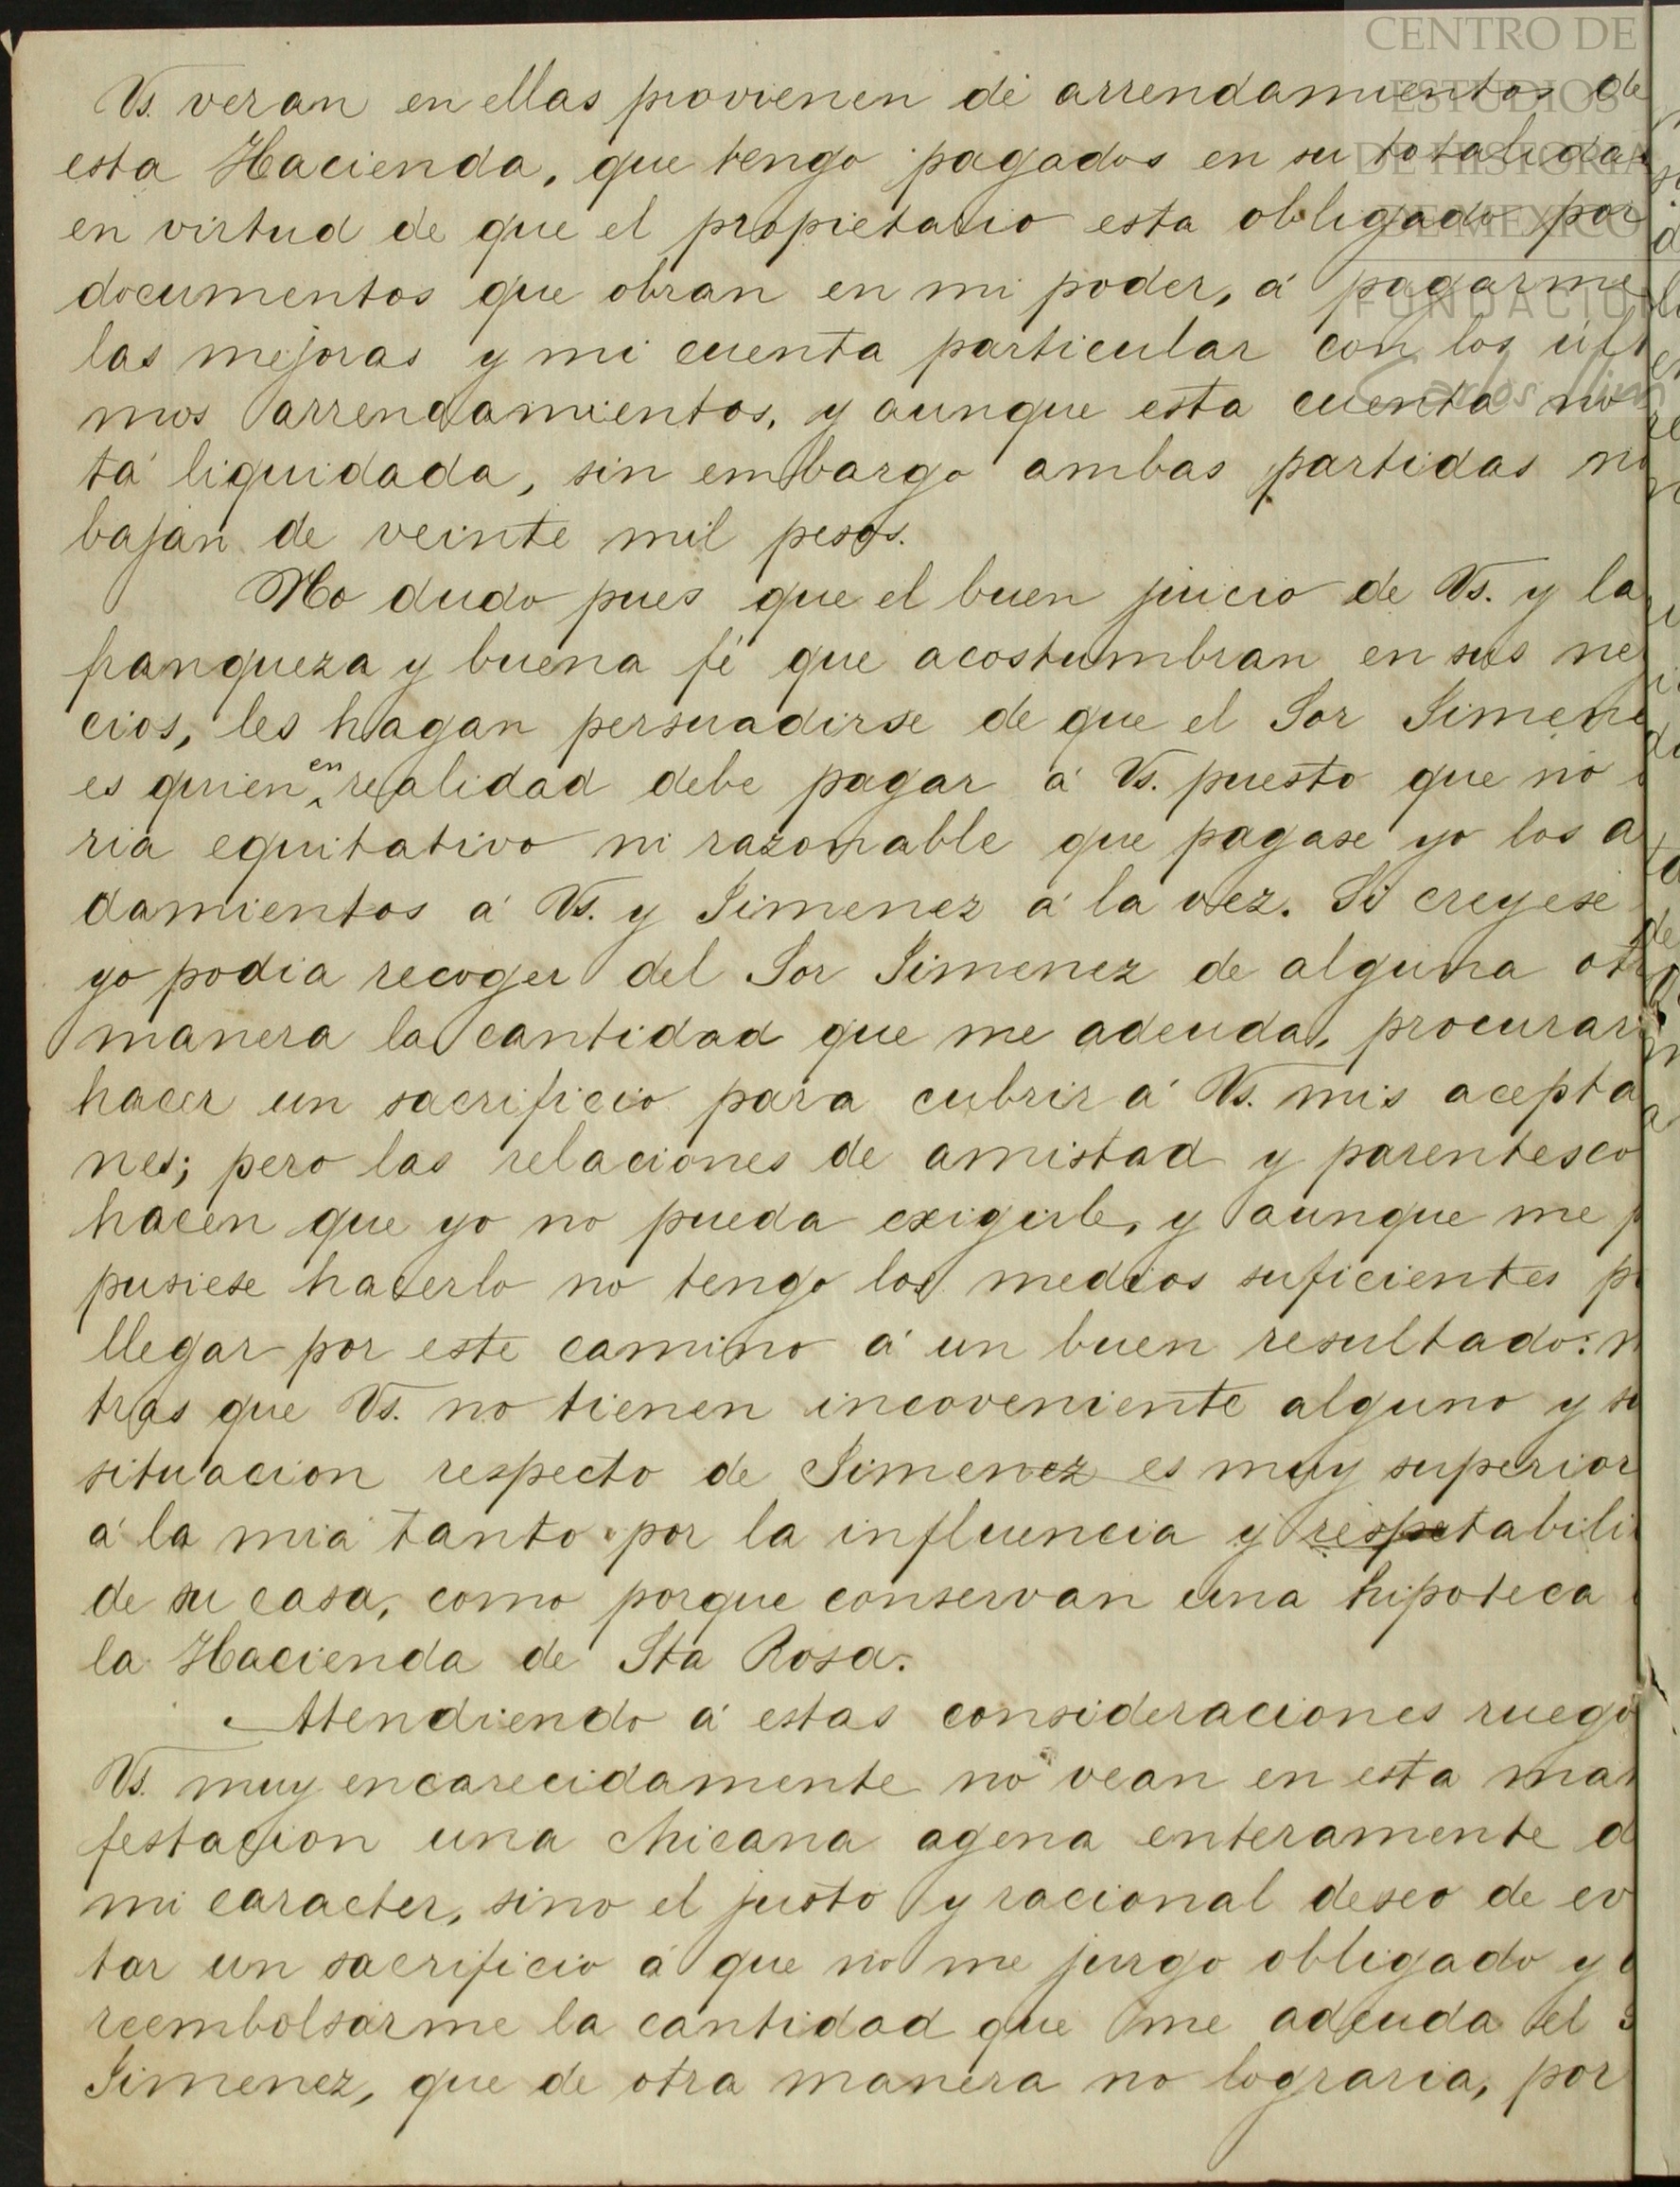 CENTRO DE
ESTUDIOS
DE HISTORIA
DE MEXICO
FUNDACION
Vs. veran en ellas provienen de arrendamientos de
esta Hacienda, que tengo pagados en su totalida
en virtud de que el propietario esta obligado por
documentos que obran en mi poder, á pagarme
las mejoras y mi cuenta particular con los últ
mos arrendamientos, y aunque esta cuenta no
tá liquidada, sin embargo ambas partidas no
bajan de veinte mil pesos.
No dudo pues que el buen juicio de Vs. y la
franqueza y buena fé que acostumbran en sus ne
cios, les hagan persuadirse de que el Sor Jimene
es quien en realidad debe pagar á Vs. puesto que no
ria equitativo ni razonable que pagase yo los a
damientos á Vs. y Jimenez á la vez. Si creyese
yo podia recoger del Sor Jimenez de alguna otr
manera la cantidad que me adeuda, procurar
hacer un sacrificio para cubrir á Vs. mis acepta
nes; pero las relaciones de amistad y parentesco
hacen que yo no pueda exigirle, y aunque me p
pusiese hacerlo no tengo los medios suficientes p
llegar por este camino á un buen resultado: m
tras que Vs. no tienen incoveniente alguno y su
situacion respecto de Jimenez es muy superior
á la mia tanto por la influencia y respetabili
de su casa, como porque conservan una hipoteca
la Hacienda de Sta Rosa.
Atendiendo á estas consideraciones ruego
Vs. muy encarecidamente no vean en esta man
festacion una chicana agena enteramente d
mi caracter, sino el justo y racional deseo de ev
tar un sacrificio á que no me juzgo obligado y
reembolsarme la cantidad que me adeuda el S
Jimenez, que de otra manera no lograria, por